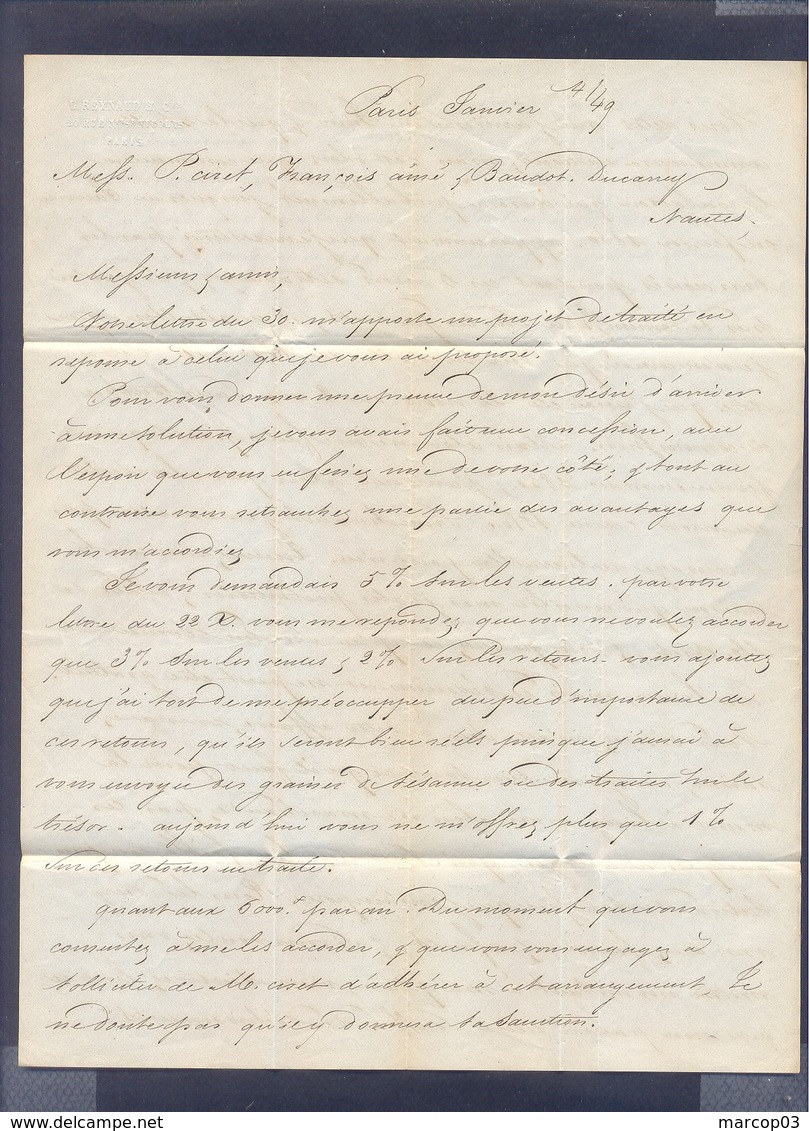 L. REYNAUD & Cie
PARIS
Paris Janvier 4/49
Mess. P. Ciret, François aîné & Baudot. Ducarrey
Nantes,
Messieurs & amis,
Votre lettre du 30. m'apporte un projet de traité en
reponse à celui que je vous ai proposé.
Pour vous donner une preuve de mon désir d'arriver
à une solution, je vous avais fait une concession, avec
l'espoir que vous en feriez une de votre côté; & tout au
contraire vous retranchez une partie des avantages que
vous m'accordiez
Je vous demandais 5% sur les ventes. par votre
lettre du 22 X. vous me repondez, que vous ne voulez accorder
que 3% sur les ventes & 2% sur les retours. vous ajoutez
que j'ai tort de me préoccupper du peu d'importance de
ces retours, qu'ils seront bien réels puisque j'aurai à
vous envoyer des graines de Sésame ou des traites sur le
trésor. aujourd'hui vous ne m'offrez plus que 1%
sur ces retours en traite.
quant aux 6000f. par an. Du moment que vous
consentez à me les accorder, & que vous vous engagez à
solliciter de M. Ciret d'adhérer à cet arrangement, Je
ne doute pas qu'il y donnera sa Sanction.
marcop03